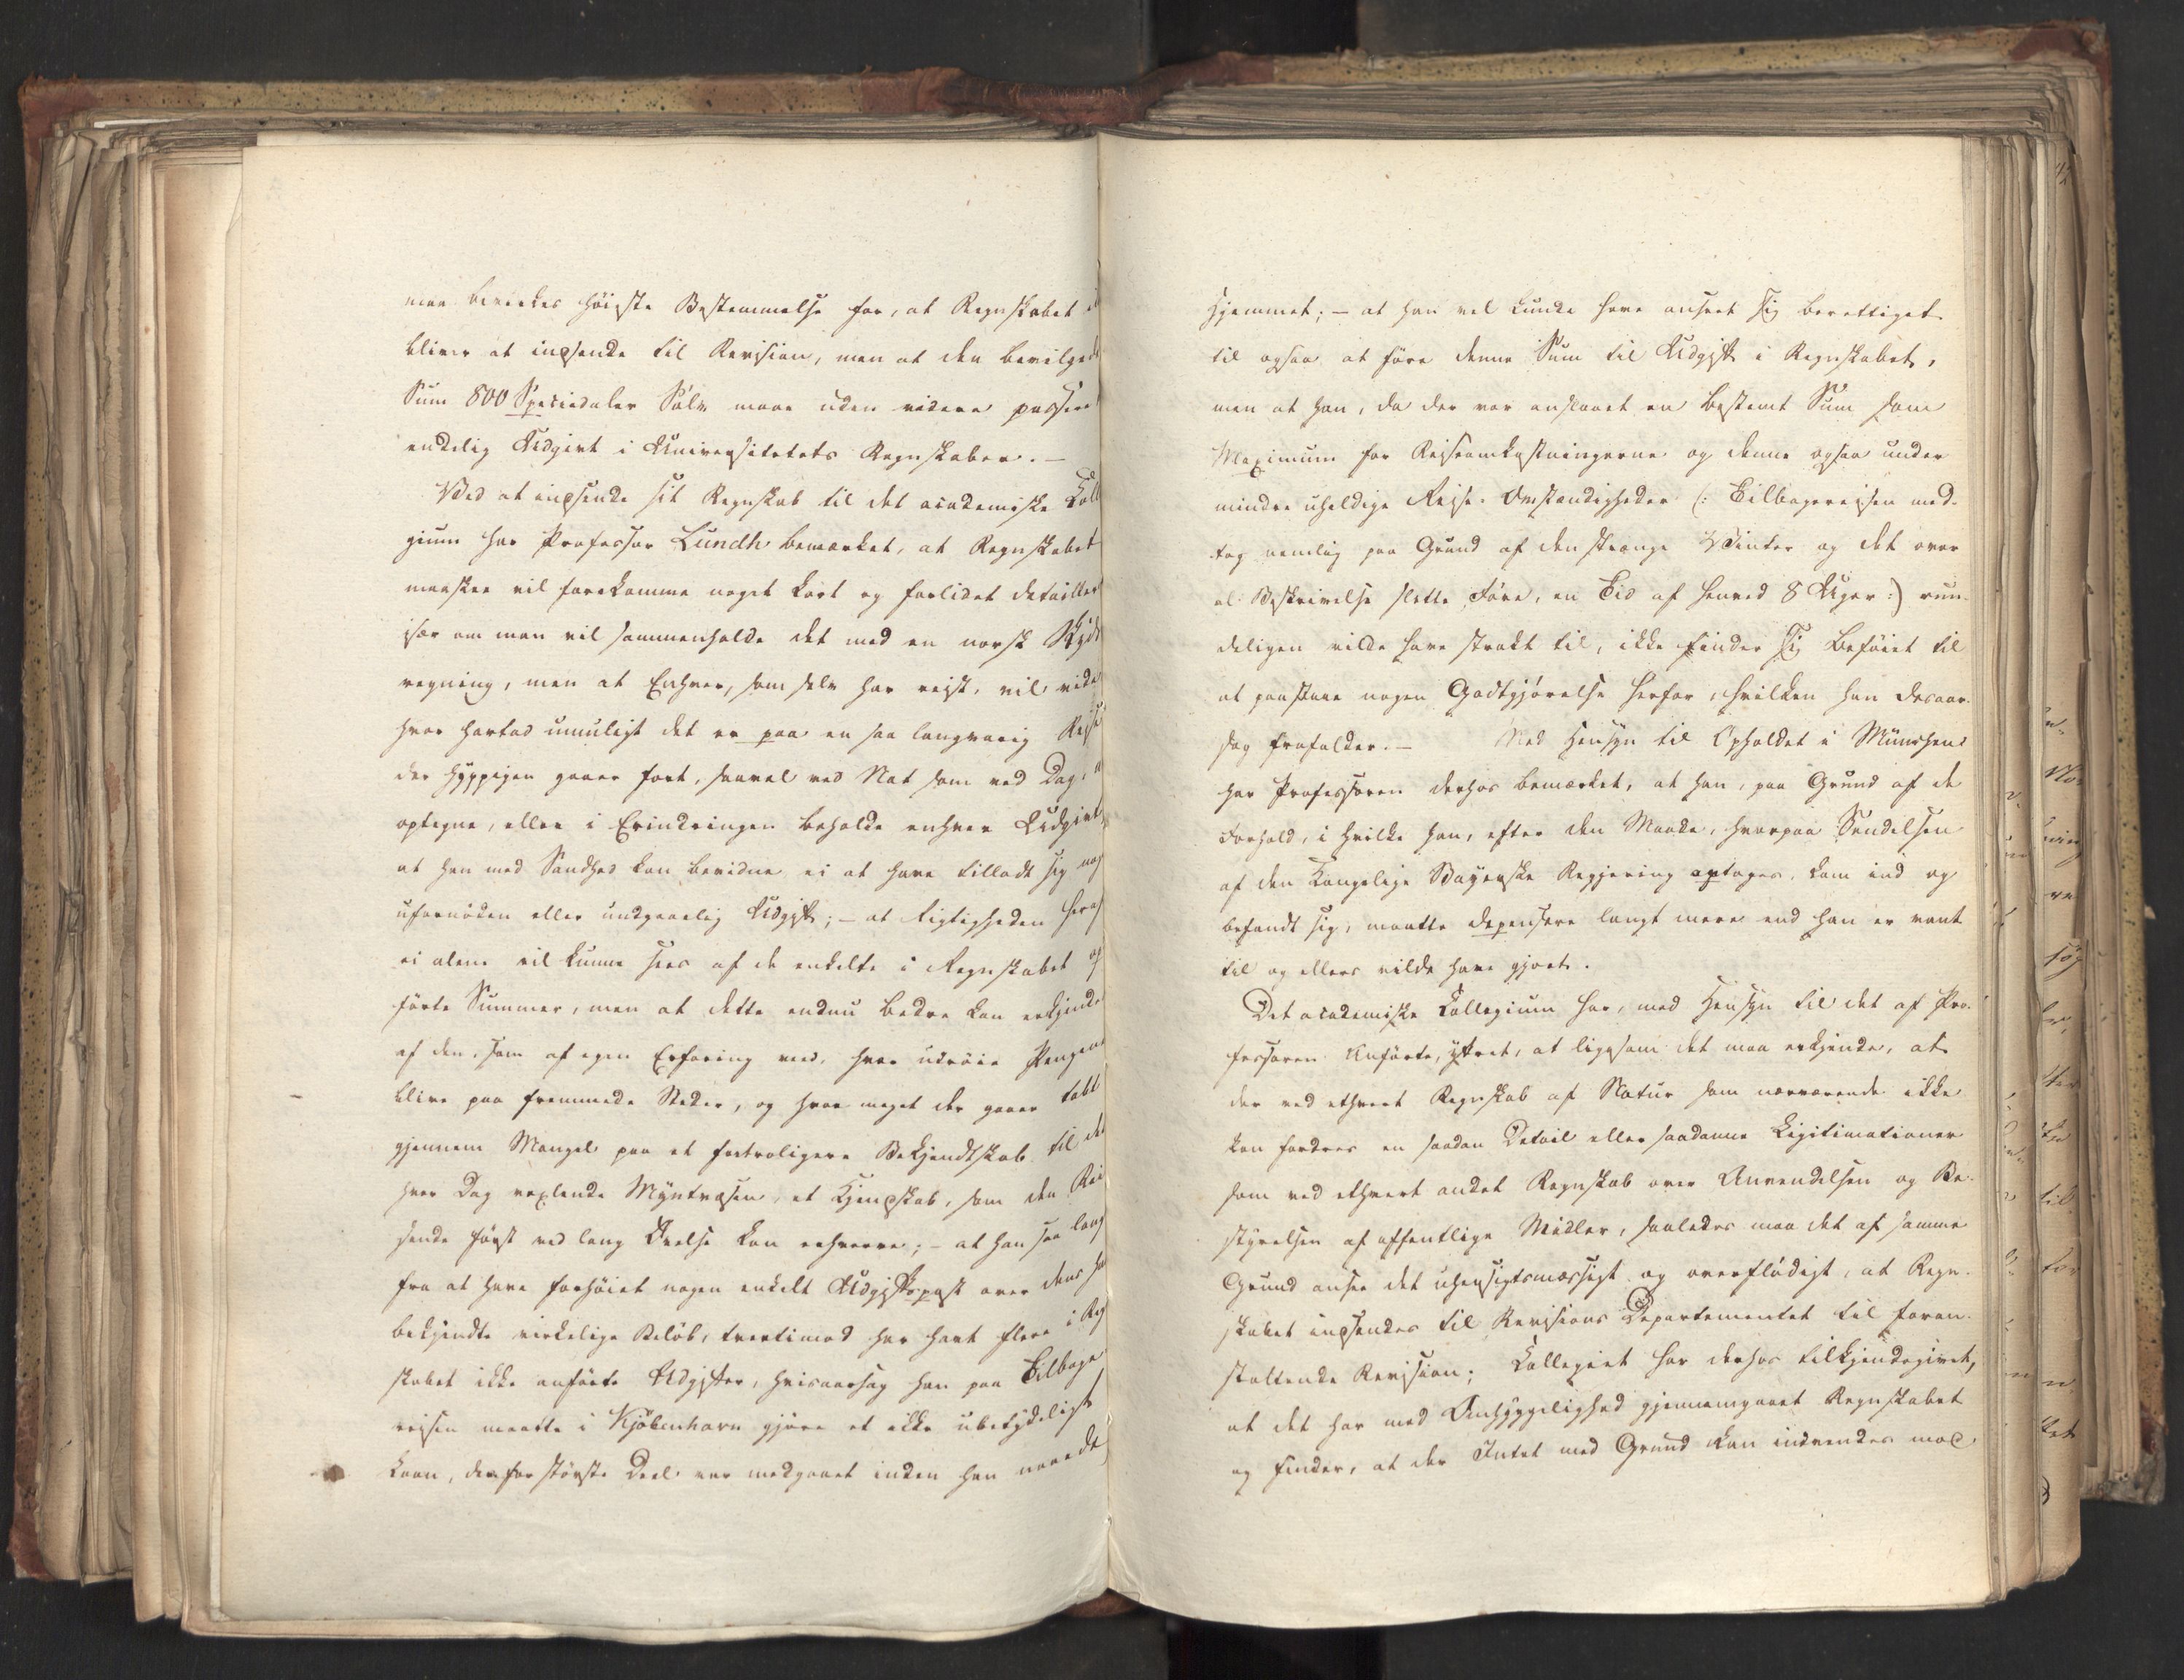 maa bevirkes höieste Bestemmelse for, at Regnskabet ei
bliver at indsende til Revision, men at den bevilgede
Sum 800 Speciedaler Sölv maae uden videre passere
endelig Udgivt i Universitetets Regnskaber. –
Ved at indsende sit Regnskab til det academiske Colle
gium har Professor Lundh bemærket, at Regnskabet
maaskee vil forekomme noget kort og forlidet detailleret
især om man vil sammenholde det med en norsk Skyds
regning, men at Enhver, som selv har reist, vil vide
hvor hartad umuligt det er paa en saa langvarig Reise
der hyppigen gaaer fort, saavel ved Nat som ved Dag, at
optegne, eller i Erindringen beholde enhver Udgivt,
at han med Sandhed kan bevidne, ei at have tilladt sig nogen
ufornöden eller undgaaelig Udgift; – at Rigtigheden heraf
ei alene vil kunne sees af de enkelte i Regnskabet op
förte Summer, men at dette endnu bedre kan erkjendes
af den, som af egen Erfaring veed, hvor udröie Pengene
blive paa fremmede Steder, og hvor meget der gaaer tabt
gjennem Mangel paa et fortroligere Bekjendtskab til det
hver Dag vexlende Myntvæsen, et Kjendskab, som den Rei
sende först ved lang Övelse kan erhverve; – at han saa langt
fra at have forhöiet nogen enkelt Udgiftspost over dens ham
bekjendte virkelige Belöb, tvertimod har havt flere i Regn
skabet ikke anförte Udgifter, hvisaarsag han paa Tilbage
reisen maatte i Kjöbenhavn gjöre et ikke ubetydeligt
Laan, der for störste Deel var medgaaet inden han naaede
Hjemmet; – at han vel kunde have anseet sig berettiget
til ogsaa at före denne Sum til Udgift i Regnskabet,
men at han, da der var anslaaet en bestemt Sum som
Maximum for Reiseomkostningerne og denne ogsaa under
mindre uheldige Reise-Omstændigheder (: Tilbagereisen med-
tog nemlig paa Grund af den strænge Vinter og det over
al Beskrivelse slette Före, en Tid af henved 8 Uger :) rim-
deligen vilde have strakt til, ikke finder sig beföiet til
at paastaae nogen Godtgjörelse herfor, hvilken han desaar-
sag frafalder. – Med Hensyn til Opholdet i München
har Professoren derhos bemærket, at han, paa Grund af de
Forhold, i hvilke han, efter den Maade, hvorpaa Sendelsen
af den Kongelige Bayerske Regjering optoges, kom ind og
befandt sig, maatte depensere langt mere end han er vant
til og ellers vilde have gjort.
Det academiske Collegium har, med Hensyn til det af Pro-
fessoren Anförte, yttret, at ligesom det maa erkjende, at
der ved ethvert Regnskab af Natur som nærværende ikke
kan fordres en saadan Detail eller saadanne Legitimationer
som ved ethvert andet Regnskab over Anvendelsen og Be-
styrelsen af offentlige Midler, saaledes maa det af samme
Grund ansee det uhensigtsmæssigt og overflödigt, at Regn-
skabet indsendes til Revisions Departementet til foran-
staltende Revision; Collegiet har derhos tilkjendegivet,
at det har med Omhyggelighed gjennemgaaet Regnskabet
og finder, at der Intet med Grund kan indvendes mod